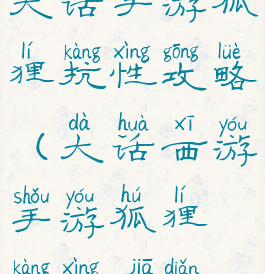 大话手游狐
lí kàng xìng gōng lüè
狸抗性攻略
dà huà xī yóu
(大话西游
shǒu yóu hú lí
手游狐狸
kàng xìng jiā diǎn